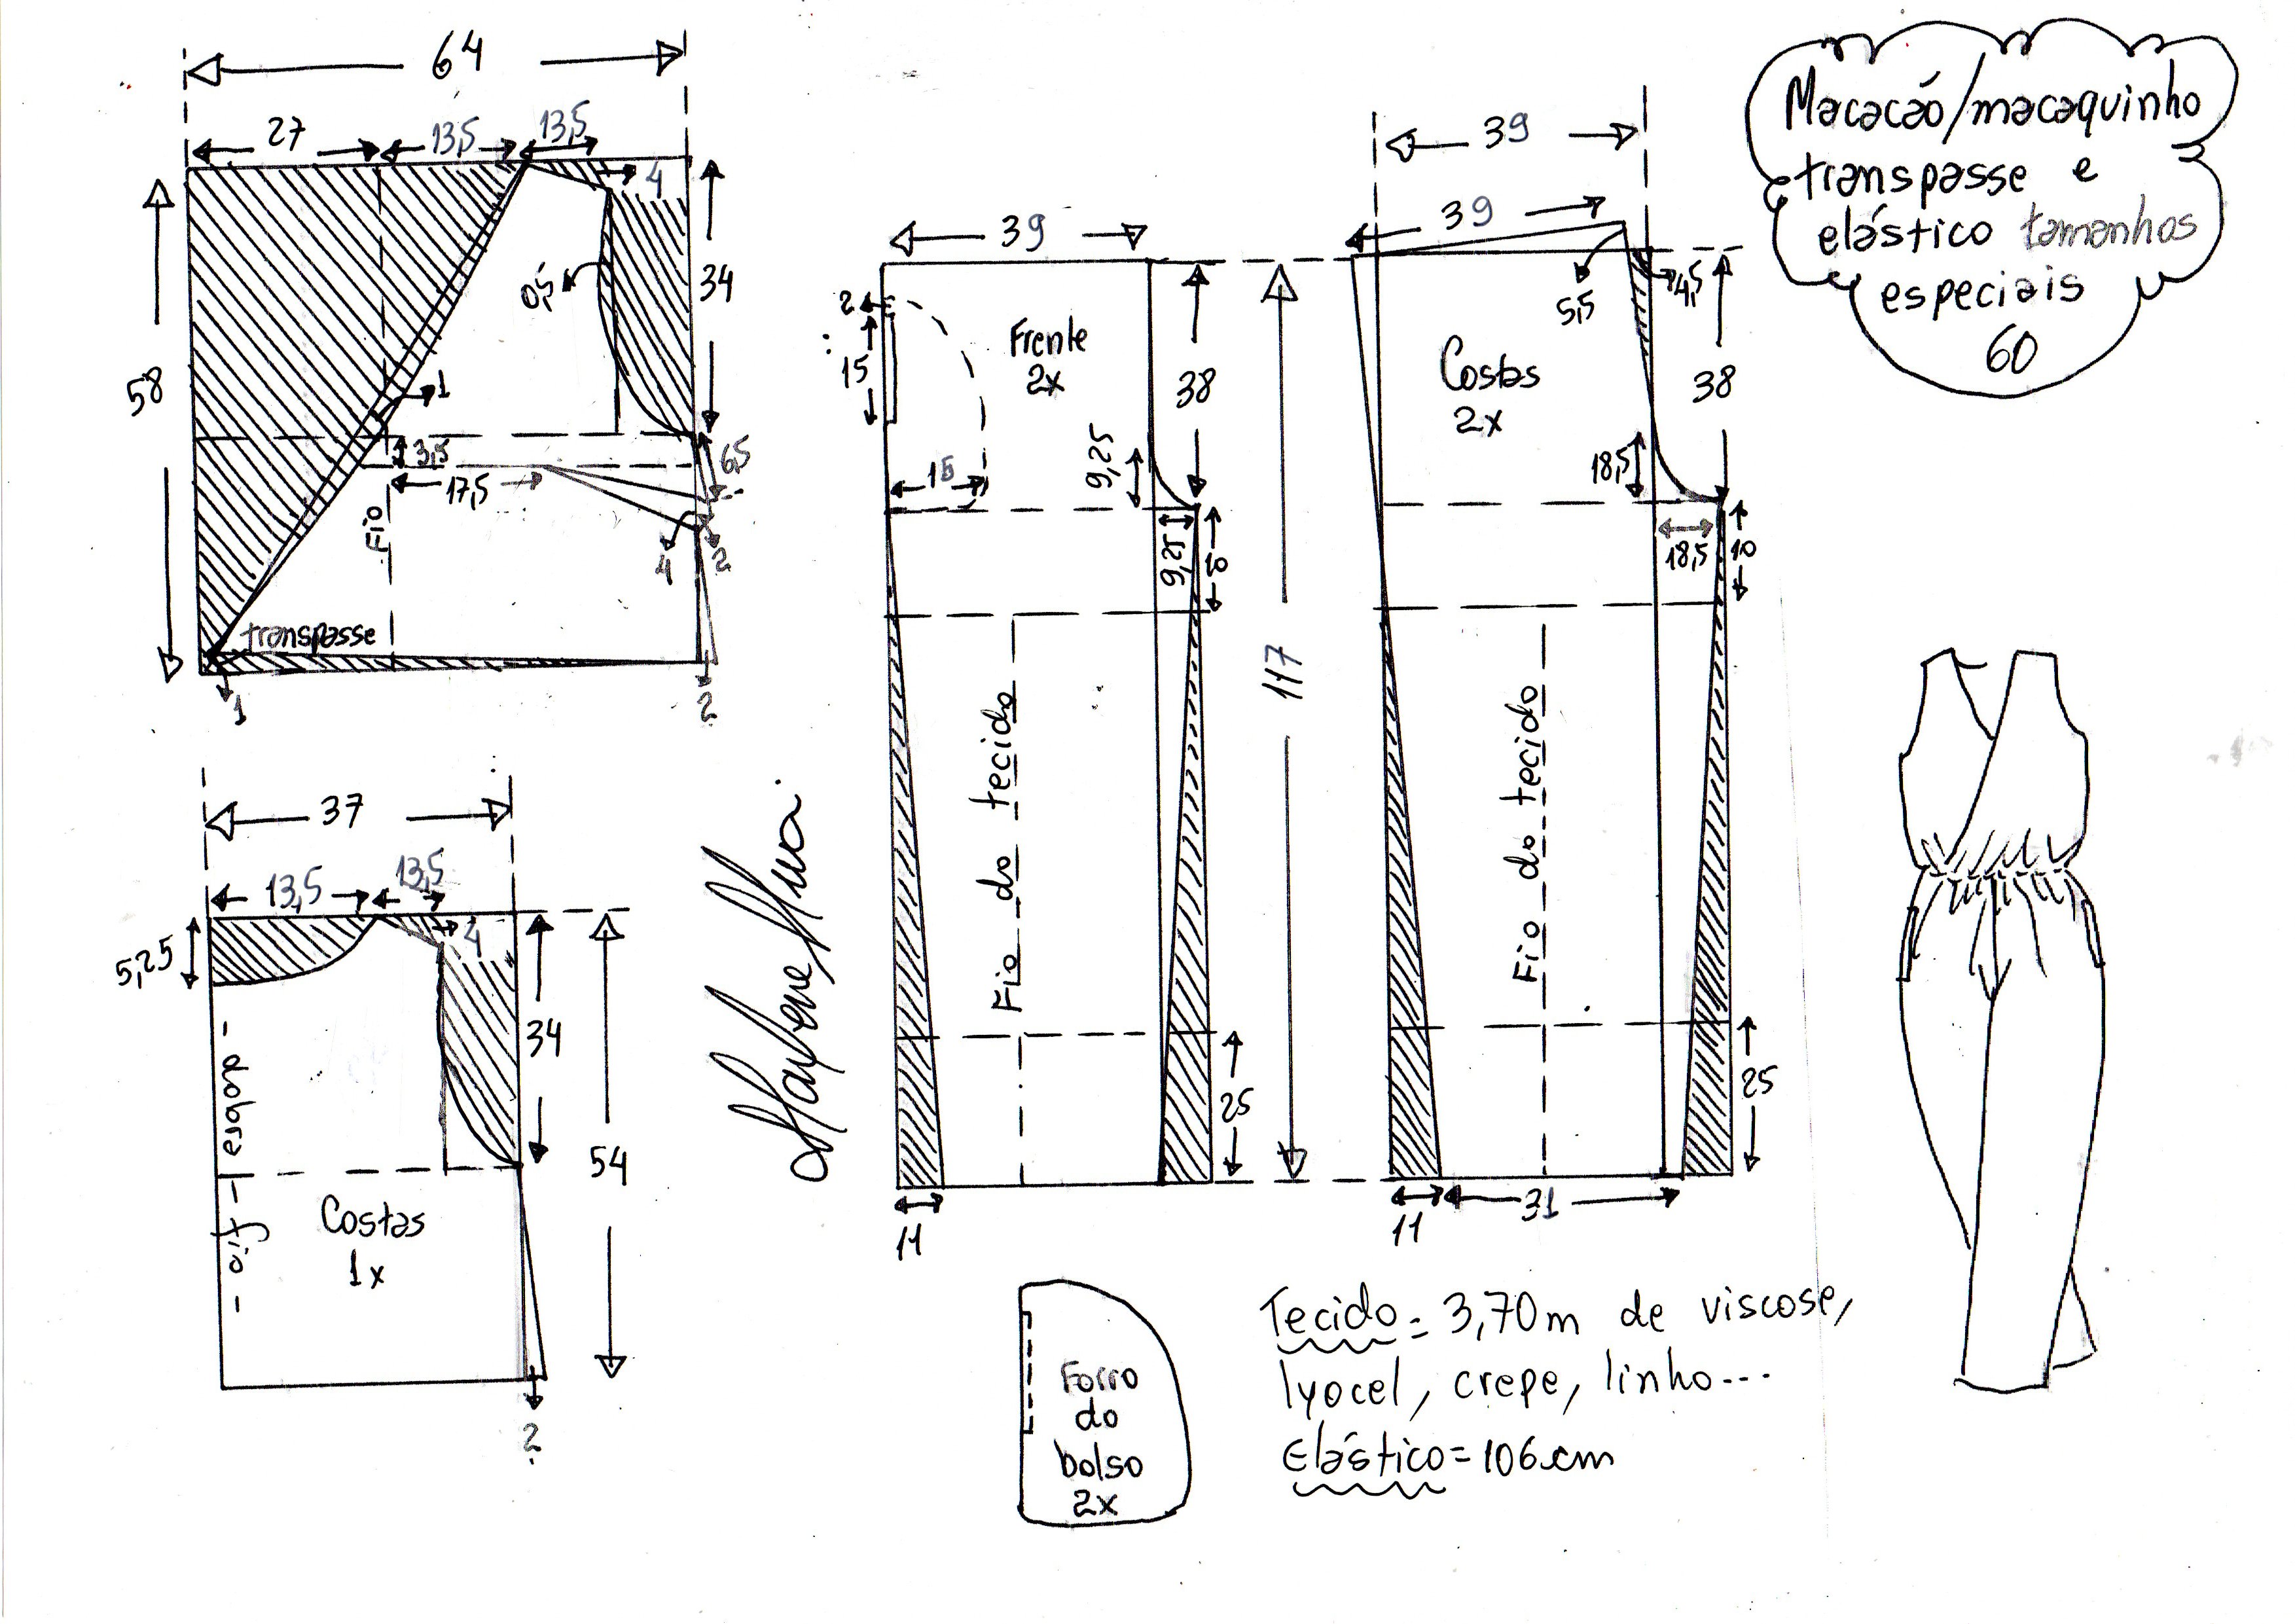 64
27
13,5
13,5
4
58
34
0,5
1
3,5
6,5
17,5
Fio
4
2
transpasse
1
2
37
13,5
13,5
5,25
4
34
54
- dobra - fio -
Costas
1x
2
39
2
15
Frente
2x
38
9,25
15
9,25
10
Fio do tecido
25
11
117
39
39
5,5
4,5
Costas
2x
38
18,5
18,5
10
Fio do tecido
25
11
31
Macacão/macaquinho
transpasse e
elástico tamanhos
especiais
60
Forro
do
bolso
2x
Tecido = 3,70m de viscose,
lyocel, crepe, linho...
Elástico = 106cm